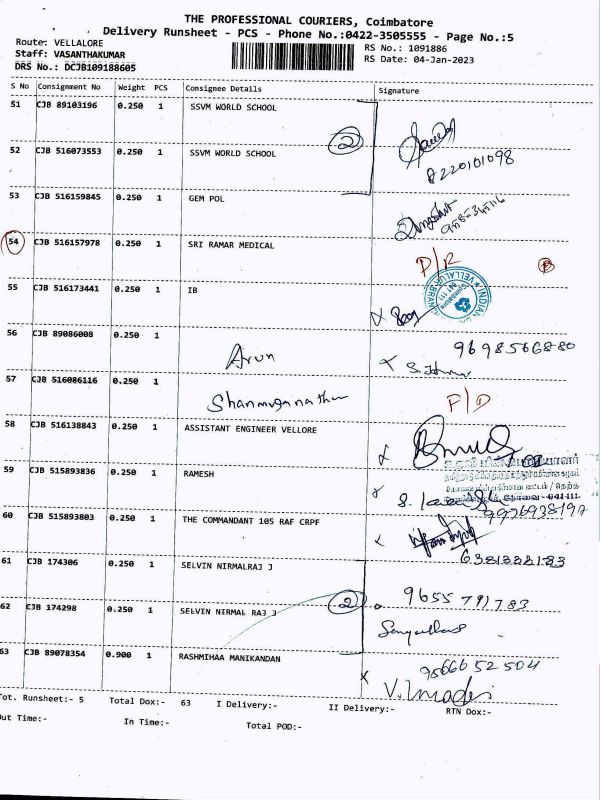 THE PROFESSIONAL COURIERS, Coimbatore
Delivery Runsheet - PCS - Phone No.:0422-3505555 - Page No.:5
Route: VELLALORE
Staff: VASANTHAKUMAR
DRS No.: DCJB109188605
RS No.: 1091886
RS Date: 04-Jan-2023
S No Consignment No Weight PCS Consignee Details Signature
51 CJB 89103196 0.250 1 SSVM WORLD SCHOOL
2
8220101098
52 CJB 516073553 0.250 1 SSVM WORLD SCHOOL
53 CJB 516159845 0.250 1 GEM POL
54 CJB 516157978 0.250 1 SRI RAMAR MEDICAL
P/R
55 CJB 516173441 0.250 1 IB
INDIAN
VELLALUR BRANCH
Coimbatore
641 111
56 CJB 89086008 0.250 1
Arun
9698566880
57 CJB 516086116 0.250 1
Shanmuganathan
P/D
58 CJB 516138843 0.250 1 ASSISTANT ENGINEER VELLORE
59 CJB 515893836 0.250 1 RAMESH
9976938197
60 CJB 515893803 0.250 1 THE COMMANDANT 105 RAF CRPF
6381388183
61 CJB 174306 0.250 1 SELVIN NIRMALRAJ J
9655791783
62 CJB 174298 0.250 1 SELVIN NIRMAL RAJ J
2
63 CJB 89078354 0.900 1 RASHMIHAA MANIKANDAN
9566652504
Tot. Runsheet:- 5 Total Dox:- 63 I Delivery:- II Delivery:- RTN Dox:-
Out Time:- In Time:- Total POD:-